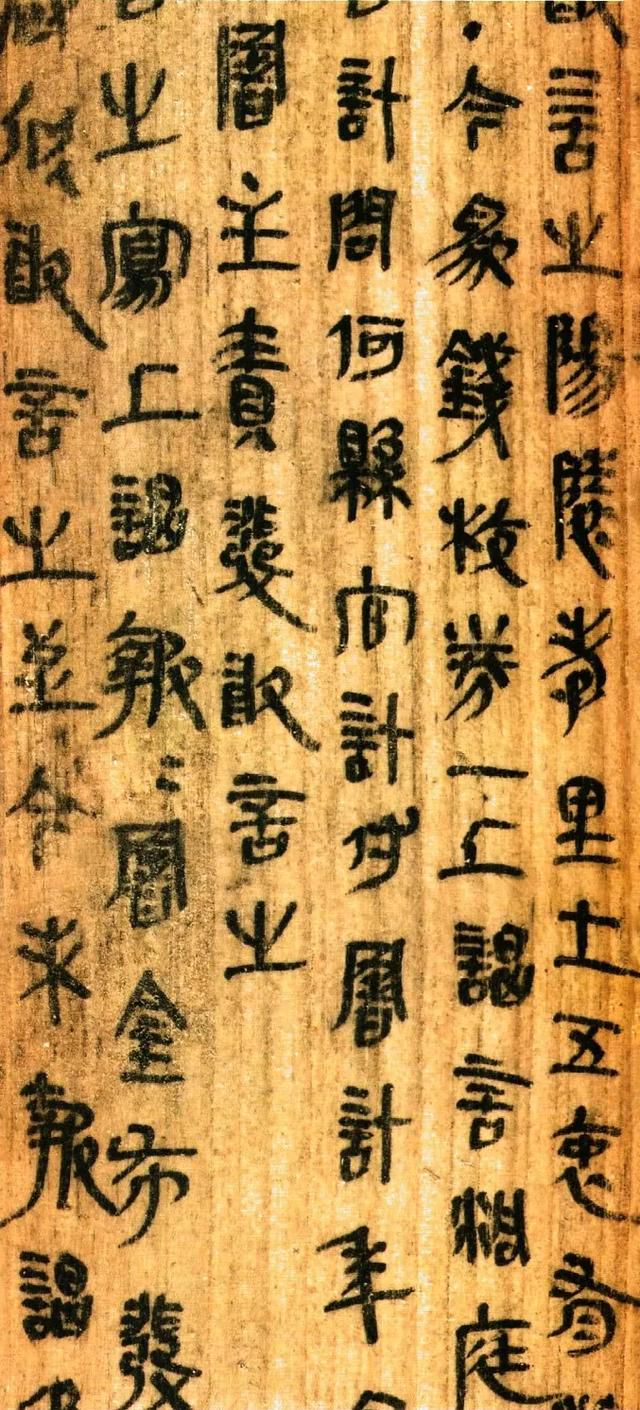 敢言之陽陵孝里士五衷有
・今為錢校券一上謁言洞庭
計問何縣官計付署計年
署主責發敢言之
之寫上謁報=署金布發
敢言之至今未報謁